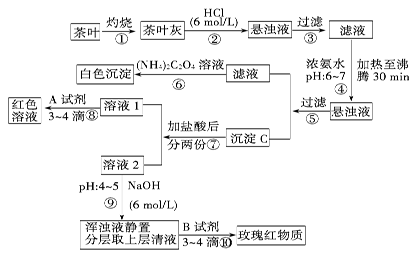 茶叶 灼烧 ① 茶叶灰 HCl (6 mol/L) ② 悬浊液 过滤 ③ 滤液
浓氨水 pH:6~7 ④ 加热至沸腾 30 min
白色沉淀 (NH₄)₂C₂O₄ 溶液 ⑥ 滤液
过滤 ⑤ 悬浊液
红色溶液 A 试剂 3~4 滴⑧ 溶液 1
加盐酸后 分两份⑦ 沉淀 C
溶液 2
pH:4~5 NaOH
⑨ (6 mol/L)
浑浊液静置 分层取上层清液 B 试剂 3~4 滴⑩ 玫瑰红物质